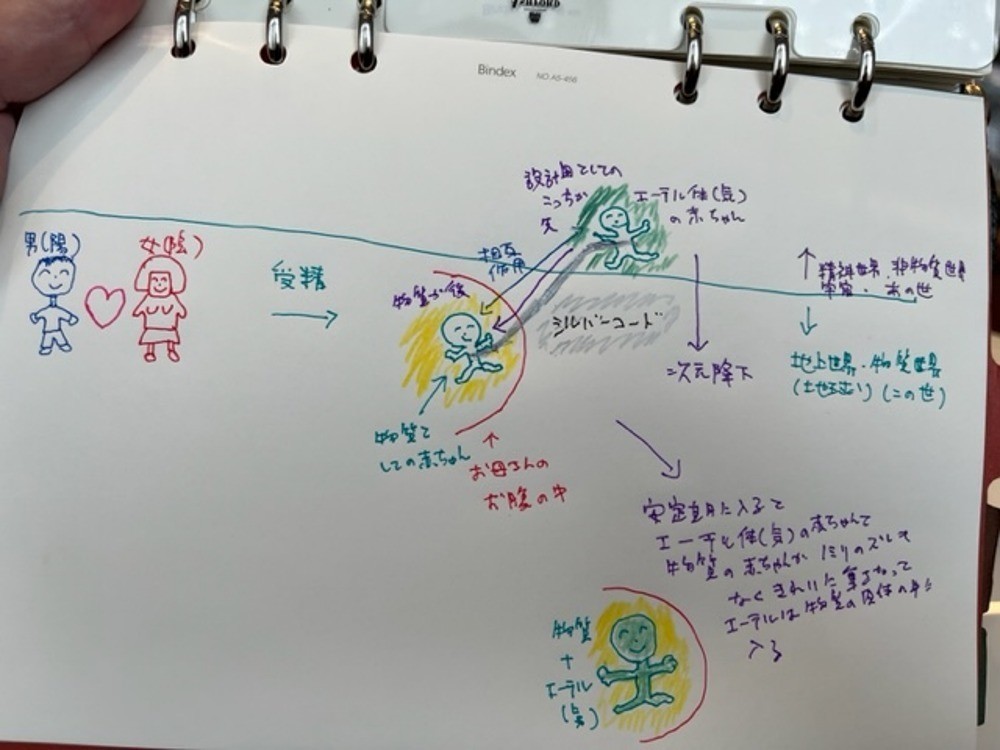 Bindex NO.A5-456
設計図としての
こっちが
先
エーテル体(気)
の赤ちゃん
男(陽)
女(陰)
受精
相互
作用
物質が後
シルバーコード
二次元降下
↑精神世界・非物質世界
宇宙・あの世
↓
地上世界・物質世界
(この世)
物質と
しての赤ちゃん
お母さんの
お腹の中
安定期に入ると
エーテル体(気)の赤ちゃんと
物質の赤ちゃんが1ミリのズレも
なくきれいに重なって
エーテルは物質の肉体の中に
入る
物質
+
エーテル
(気)